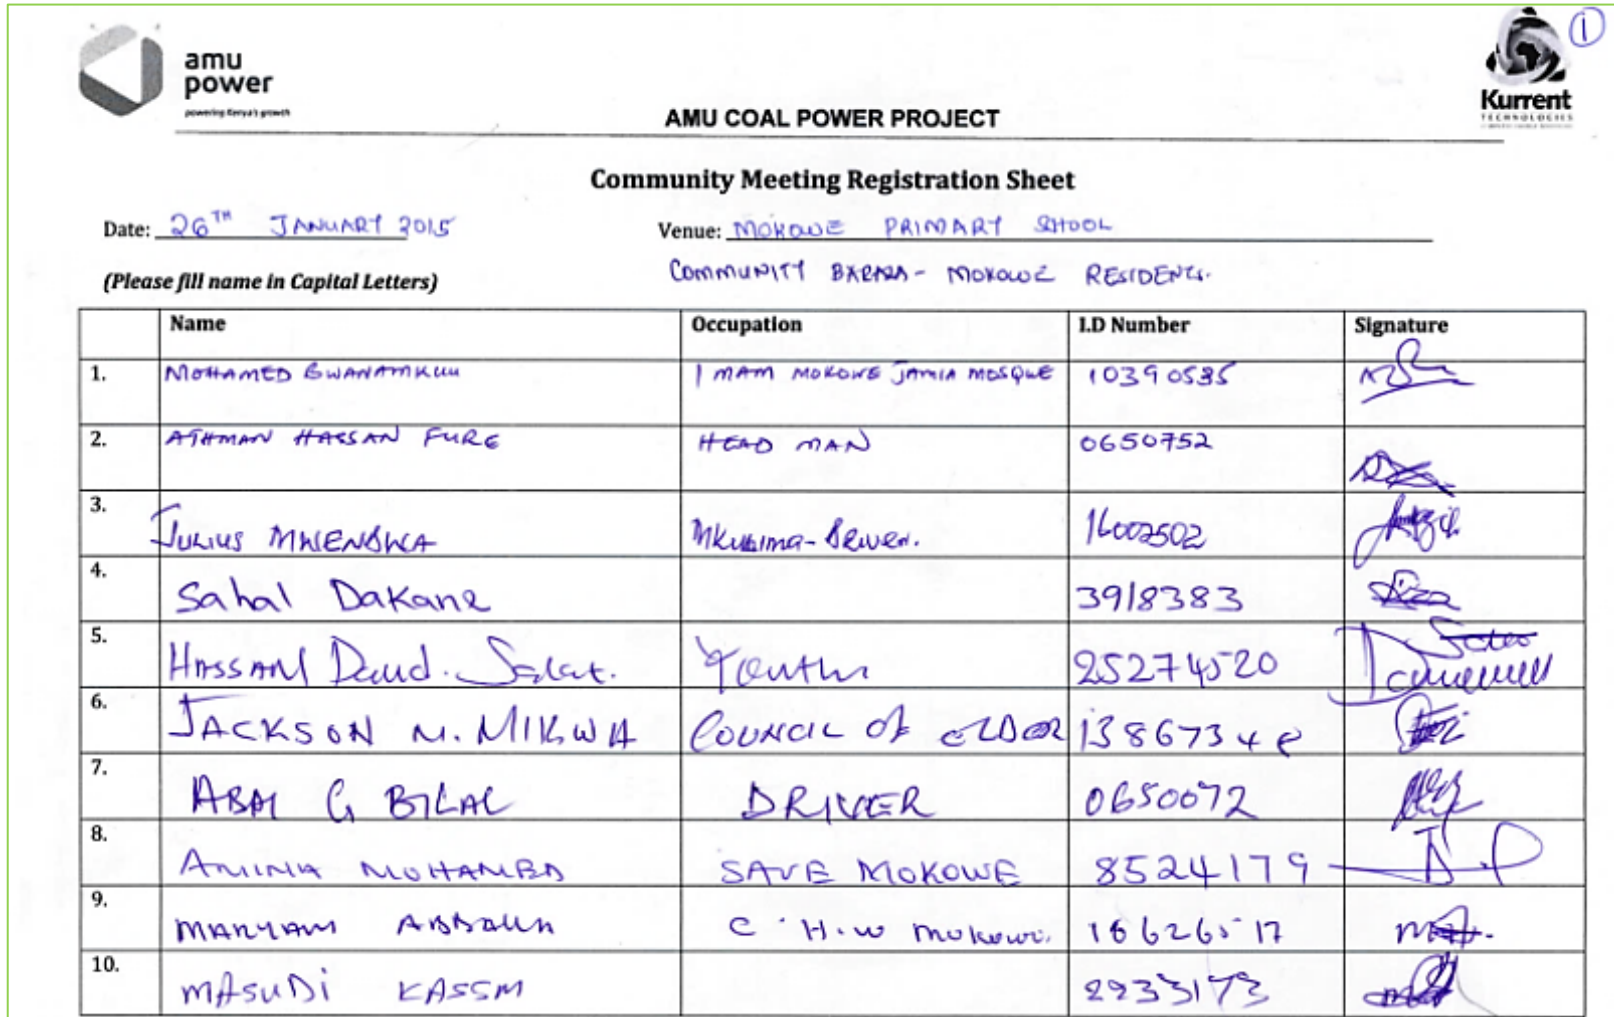 1
amu
power
powering Kenya's growth
Kurrent
TECHNOLOGIES
AMU COAL POWER PROJECT
Community Meeting Registration Sheet
Date: 26TH JANUARY 2015 Venue: MOKOWE PRIMARY SCHOOL
(Please fill name in Capital Letters) COMMUNITY BARAZA - MOKOWE RESIDENTS.
Name Occupation I.D Number Signature
1. MOHAMED BWANAMKUU IMAM MOKOWE JAMIA MOSQUE 10390535
2. ATHMAN HASSAN FURE HEAD MAN 0650752
3. JULIUS MWENDWA Mkulima- 16002502
4. Sahal Dakane 3918383
5. HASSAN Daud. Salat. Youth 25274520
6. JACKSON M. MIKWA COUNCIL Of ELDER 1386734
7. ABAI G BILAL DRIVER 0650072
8. AMINA MOHAMED SAVE MOKOWE 8524179
9. MARYAM ABDALLA C.H.W MOKOWE. 18626517
10. MASUDI KASSM 2933173